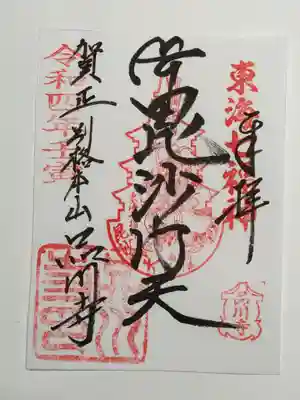 東海七福神
奉拝
毘沙門天
令和四年壬寅
賀正 別格本山 品川寺
品川寺